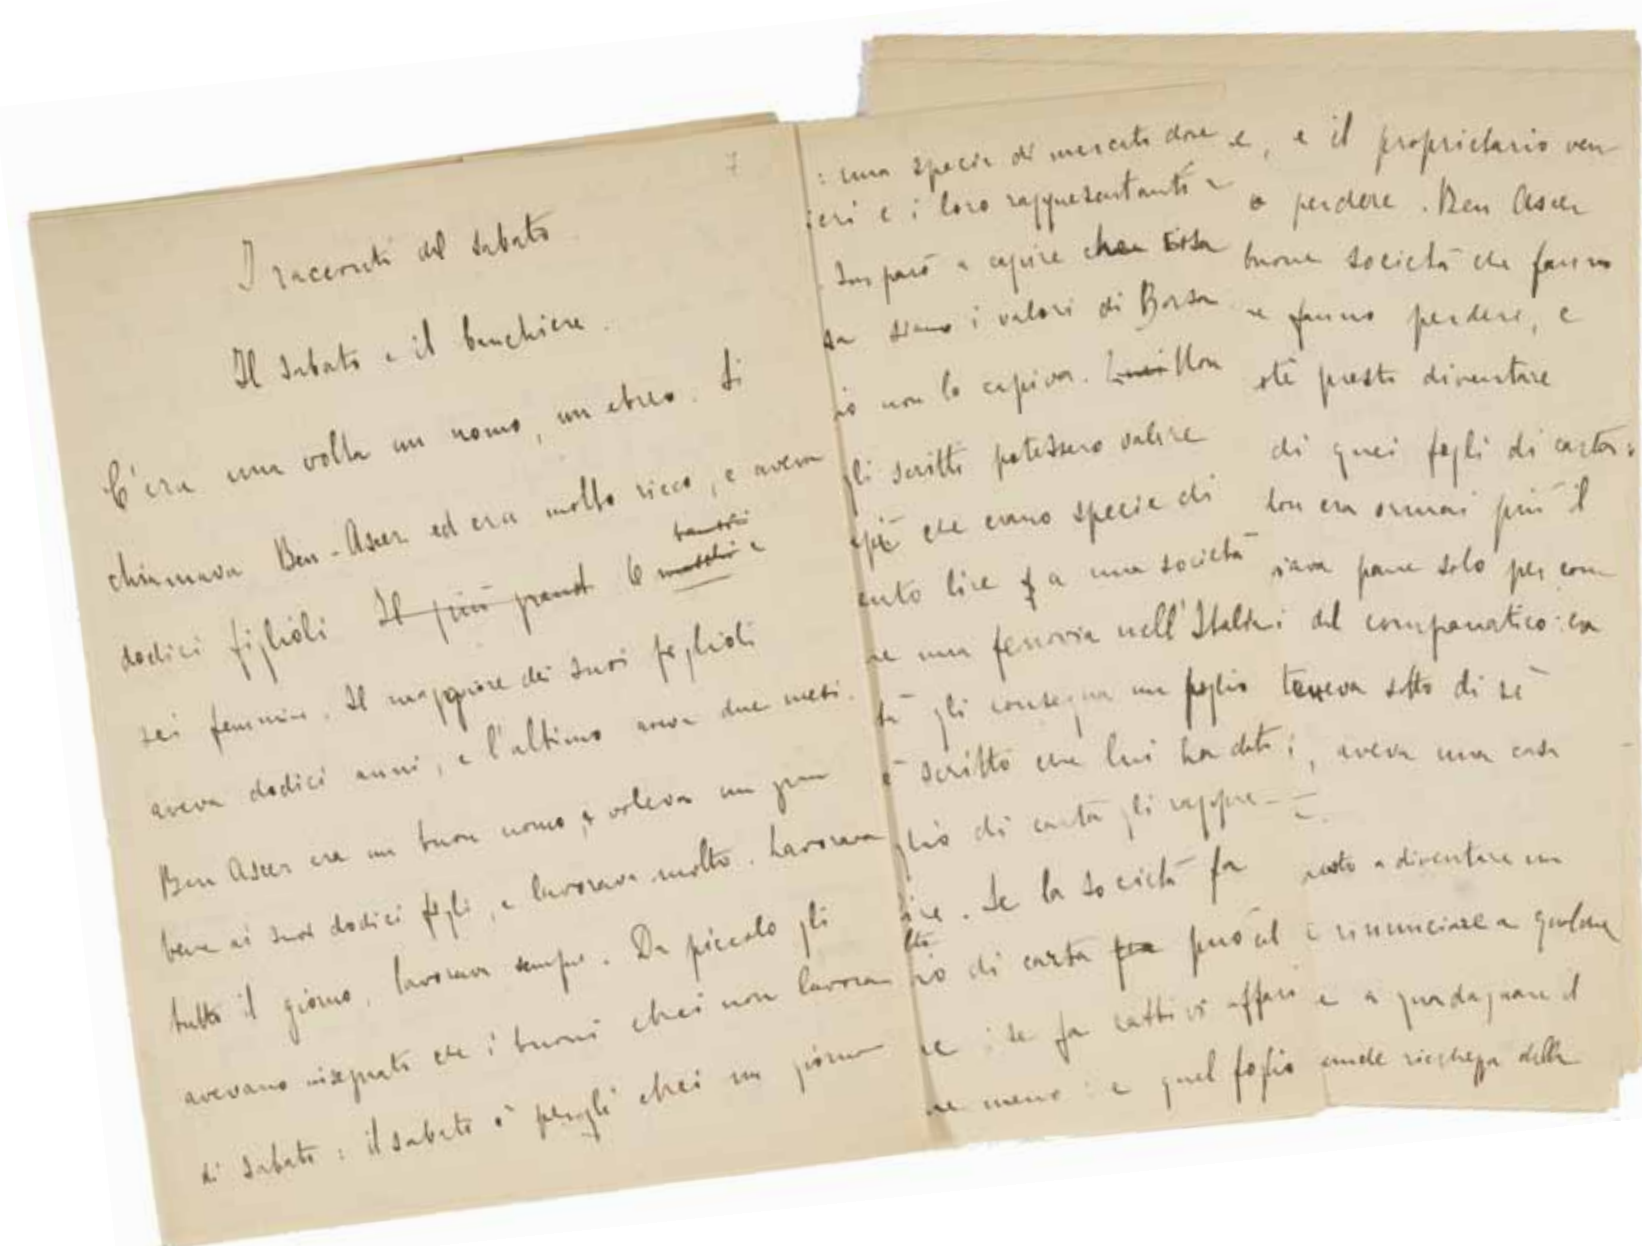 7
I racconti del sabato
Il sabato e il banchiere.
C'era una volta un uomo, un ebreo. Si
chiamava Ben-Ascer ed era molto ricco, e aveva
dodici figlioli Il più grand 6 maschi e
sei femmine. Il maggiore dei suoi figlioli
aveva dodici anni, e l'ultimo aveva due mesi.
Ben Ascer era un buon uomo, voleva un gran
bene ai suoi dodici figli, e lavorava molto. Lavorava
tutto il giorno, lavorava sempre. Da piccolo gli
avevano insegnato che i buoni ebrei non lavoran
di sabato: il sabato è per gli ebrei un giorno
: una specie di mercato dove
ieri e i loro rappresentanti
Imparò a capire che cosa
sa siano i valori di Borsa
iò non lo capiva. Non
gli scritti potessero valere
che erano specie di
ento lire a una società
re una ferrovia nell'Italia
tà gli consegna un foglio
è scritto che lui ha dato
glio di carta gli rappre-
ire. Se la società fa
io di carta può
re; se fa cattivi affari
re meno: e quel foglio
e, e il proprietario ven
o perdere. Ben Ascer
buone società che fanno
e fanno perdere, e
otè presto diventare
di quei fogli di carta:
Non era ormai più il
nava pane solo per com
i del companatico: ora
teneva sotto di sè
i, aveva una casa
a diventare un
e rinunciare a qualche
e a guadagnare il
ande ricchezza della